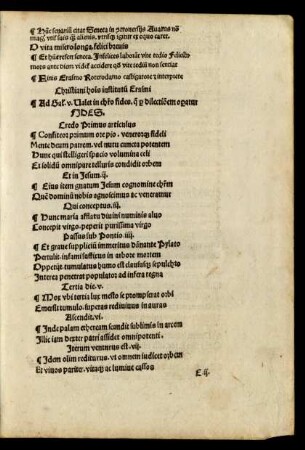 ¶ Hũc senariũ citat Seneca in
magꝭ vni suis ꝗ̃ alienis. versus igitur et equo caret.
O vita misero longa, felici breuis
¶ Et huic
mors ante diem vidit accidere ꝗ̃ vite tedii non sentiat
¶ Finis Erasmo Roterodamo castigatore ⁊ interprete
Christiani hoĩs institutũ Erasmi
¶ Ad Gal. v. Valet in chr̃o fides. ꝗ̃ ꝑ dilectiõem oꝑatur
FIDES.
Credo Primus articulus
¶ Confiteor primum ore pio. venerorꝙ fideli
Mente deum patrem. vel nutu cuncta potentem
Hunc qui stelligeri spacio volumina celi
Et solidũ omniparẽ telluris condidit orbem
Et in Jesum. ij.
¶ Eius item gnatum Jesum cognomine chr̃m
Quẽ dominũ nobis agnoscimus ac veneramur
Qui conceptus. iij.
¶ Hunc maria afflatu diuini numinis aluo
Concepit virgo. peperit purissima virgo
Passus sub Pontio. iiij.
¶ Et graue suppliciũ immeritus dãnante Pylato
Pertulit. infami suffixus in arbore mortem
Oppetijt. tumulatus humo est claususꝙ sepulchro
Interea penetrat populator ad infera regna
Tertia die. v.
¶ Mox vbi tertia lux mesto se prompserat orbi
Emersit tumulo. superas rediuiuus in auras
Ascendit. vi.
¶ Inde palam etheream scandit sublimis in arcem
Illic iam dexter patri assidet omnipotenti.
Iterum venturus est. vij.
¶ Idem olim rediturus. vt omnem iudicet orbem
Et viuos pariter. vitaꝙ ac lumine cassos
E ij.